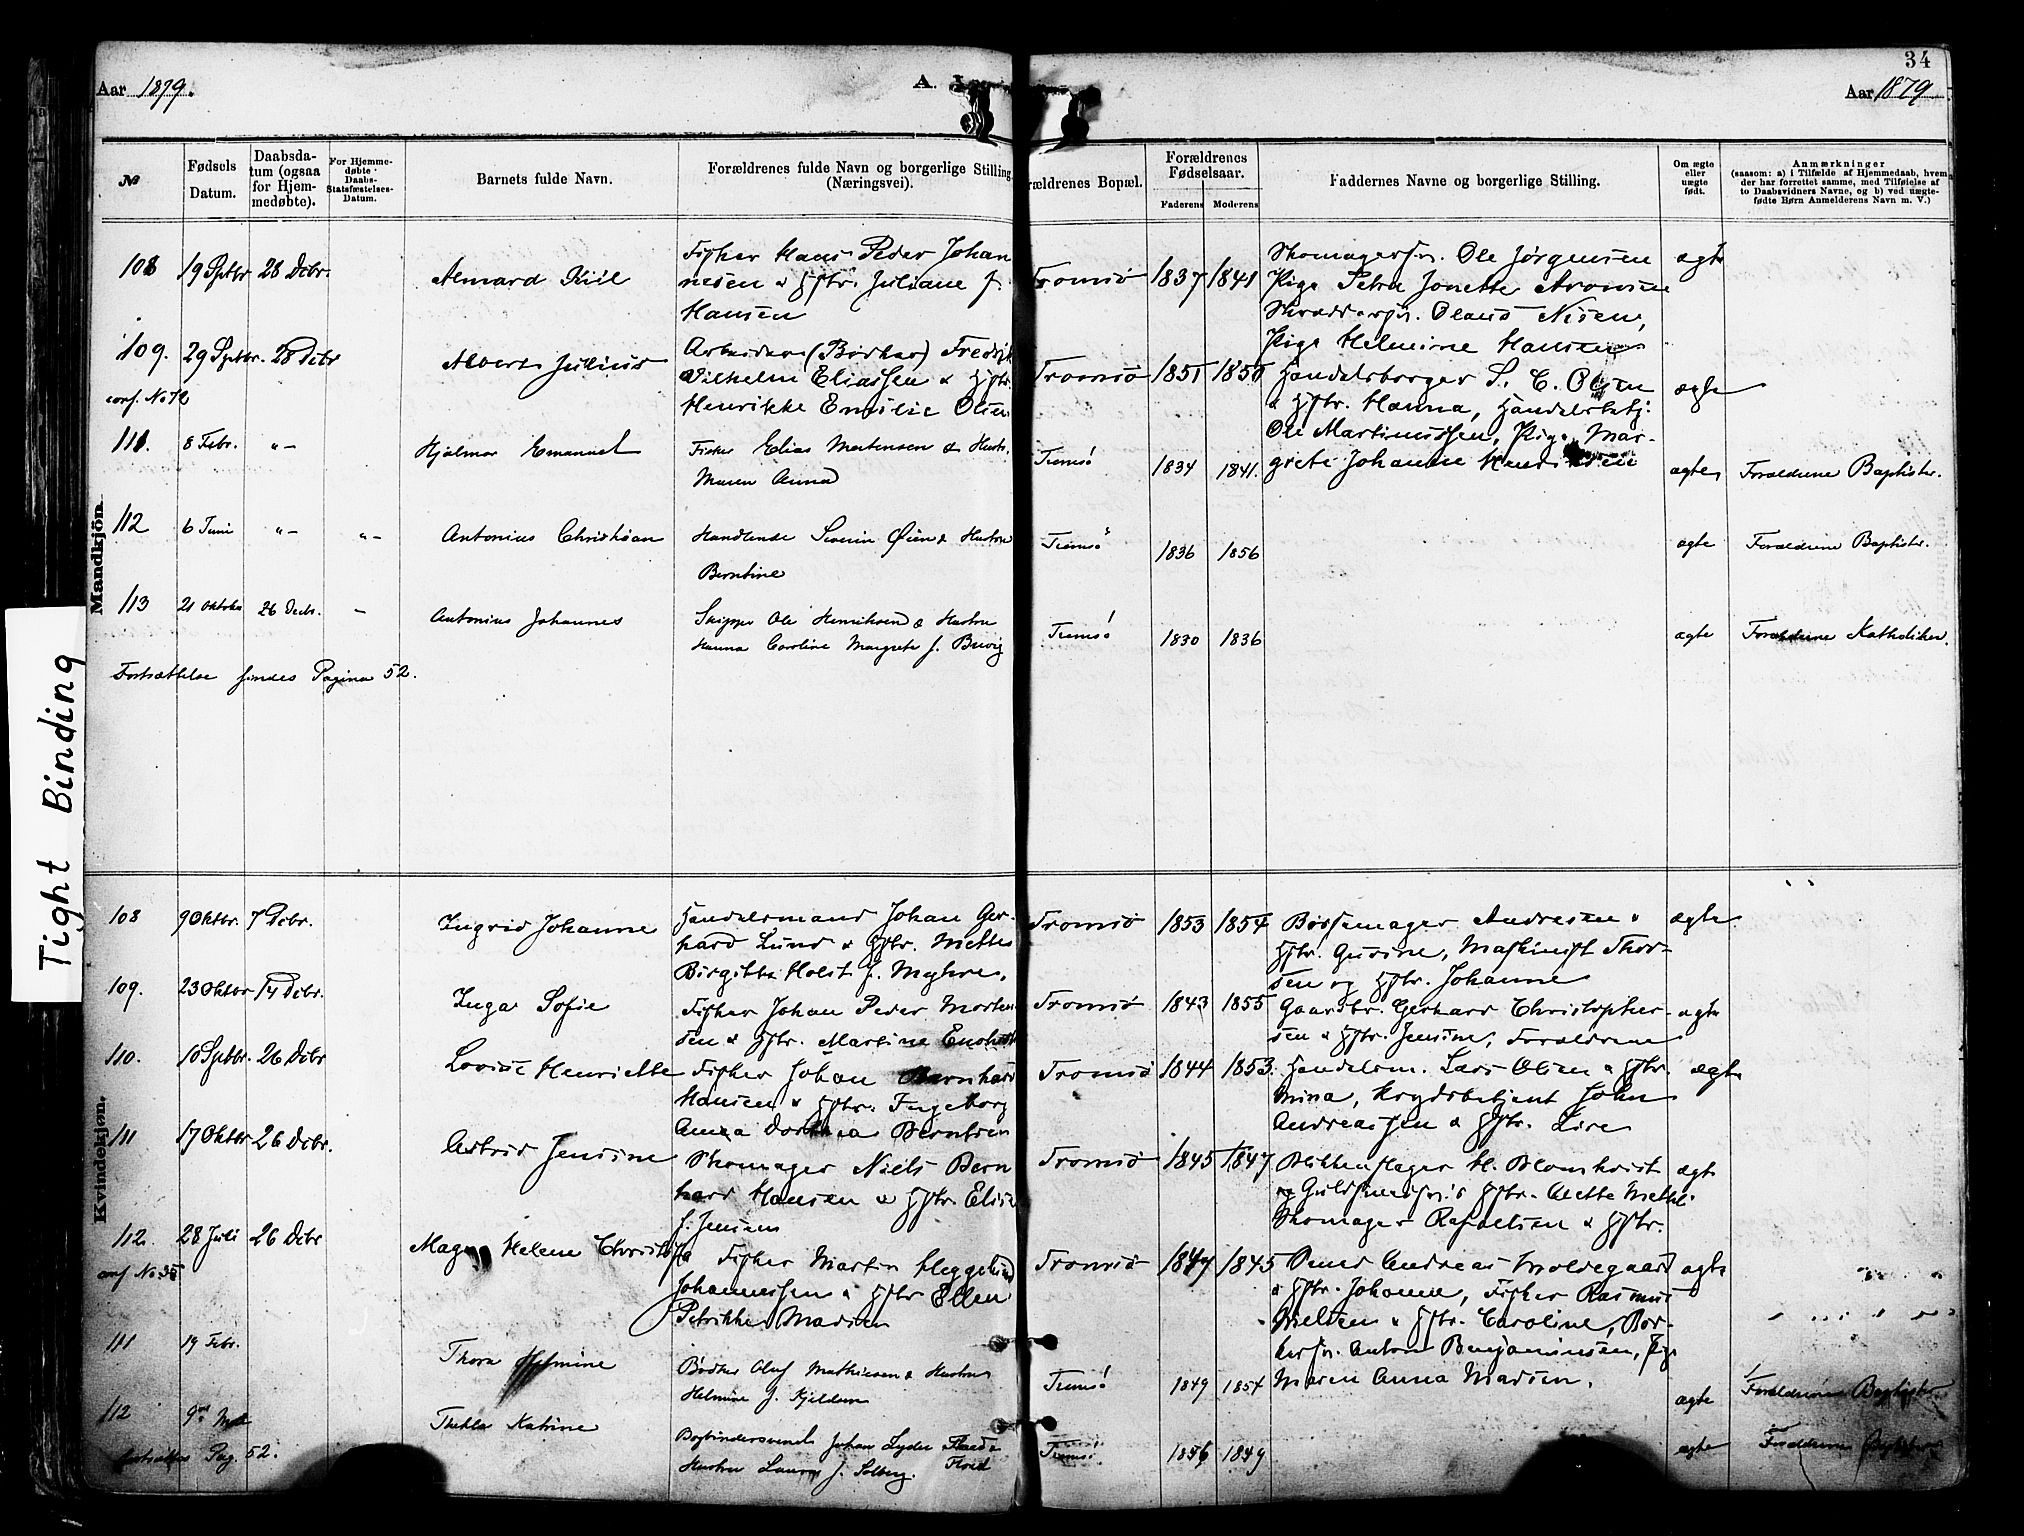 34
Aar 1879.
Aar 1879
A.
Tight Binding
№
Fødsels Datum.
Daabsdatum (ogsaa for Hjemmedøbte).
For Hjemmedøbte Daabs-Statsfæstelses-Datum.
Barnets fulde Navn.
Forældrenes fulde Navn og borgerlige Stilling (Næringsvei).
rældrenes Bopæl.
Forældrenes Fødselsaar.
Faderens
Moderens
Faddernes Navne og borgerlige Stilling.
Om ægte eller uægte født.
Anmærkninger
(saasom: a) i Tilfælde af Hjemmedaab, hvem
der har forrettet samme, med Tilføielse af
to Daabsvidners Navne, og b) ved uægte-
fødte Børn Anmelderens Navn m. V.)
Mandkjøn.
108 19 Septbr. 28 Debr.
Fisker Hans Peder Johan
nesen & Hstr. Juliane f.
Hansen
Tromsø 1837 1841
Skomagersv. Ole Jørgensen
Pige Petra Jonette Aronsen
Skræddersv. Olaus Nisen,
Pige Helmine Hansen
ægte
109. 29 Septbr. 28 Debr
conf. No 72
Albert Julius
Arbeider (Bødker) Fredrik
Vilhelm Eliassen & Hstr.
Henrikke Emilie Olsen
Tromsø 1851 1851
Handelsborger S. C. Olsen
& Hstr. Hanna, Handelsbetj.
Ole Martinussen, Pige Mar-
grete Johanne Hendriksen
ægte
111. 8 Febr. "–
Hjalmar Emanuel
Fisker Elias Mortensen & Hustr.
Maren Anna
Tromsø 1834 1841.
ægte Forældrene Baptister.
112 6 Juni "– "–
Antonius Christian
Handlende Severin Øien & Hustru
Berntine
Tromsø 1836 1856
ægte Forældrene Baptister.
113 21 Oktober 26 Decbr. –
Antonius Johannes
Skipper Ole Henriksen & Hustru
Hanna Caroline Margrete f. Brevig
Tromsø 1830 1836
ægte Forældrene Katholiker.
Fortsættelse findes Pagina 52.
Kvindekjøn.
108 9 Oktbr. 7 Debr.
Ingrid Johanne
Handelsmand Johan Ger-
hard Lund & Hstr. Mette
Birgitte Holst f. Myhre.
Tromsø 1853 1854
Børsemager Andresen &
Hstr. Gurine, Maskinist Thor-
sen og Hstr. Johanne
ægte
109. 23 Oktbr 14 Debr.
Inga Sofie
Fisker Johan Peder Morten
sen & Hstr. Martine
Tromsø 1843 1855
Gaardbr. Gerhard Christopher-
sen & Hstr. Jensine, Forældrene
ægte
110. 10 Septbr. 26 Debr
Lovise Henriette
Fisker Johan Bernhard
Hansen & Hstr. Ingeborg
Anna Dorthea Berntsen
Tromsø 1844 1853.
Handelsm. Lars Olsen & Hstr.
Mina, Krydsbetjent John
Andreassen & Hstr. Lise
ægte
111 17 Oktbr 26 Debr.
Astrid Jensine
Skomager Niels Bern
hard Hansen & Hstr. Elise
f. Jensen
Tromsø 1845 1847
Blikkenslager H. Blomkvist
og Guldsmedsv.s Hstr. Anette Mette.
Skomager Rafaelsen & Hstr.
ægte
112. 28 Juli 26 Debr
conf No 35
Magna Helene Christoffa
Fisker Martin Heggelund
Johannessen & Hstr Ellen
Petrikke Madsen
Tromsø 1847 1845
Andreas Moldegaard
& Hstr. Johanne, Fisker Rasmus
Nielsen & Hstr. Caroline, Bød-
kersv. Anton Benjaminsen, Pige
Maren Anna Madsen.
ægte
111 19 Febr.
Thora Helmine
Bødker Oluf Mathiesen & Hustru
Helmine f. Kjeldsen
Tromsø 1849 1854
ægte Forældrene Baptister
112
Thekla Katrine
Bogbindersvend Johan Lyder
Hustru Laura f. Solberg.
Tromsø 1846 1849
ægte Forældrene
Pag. 52.